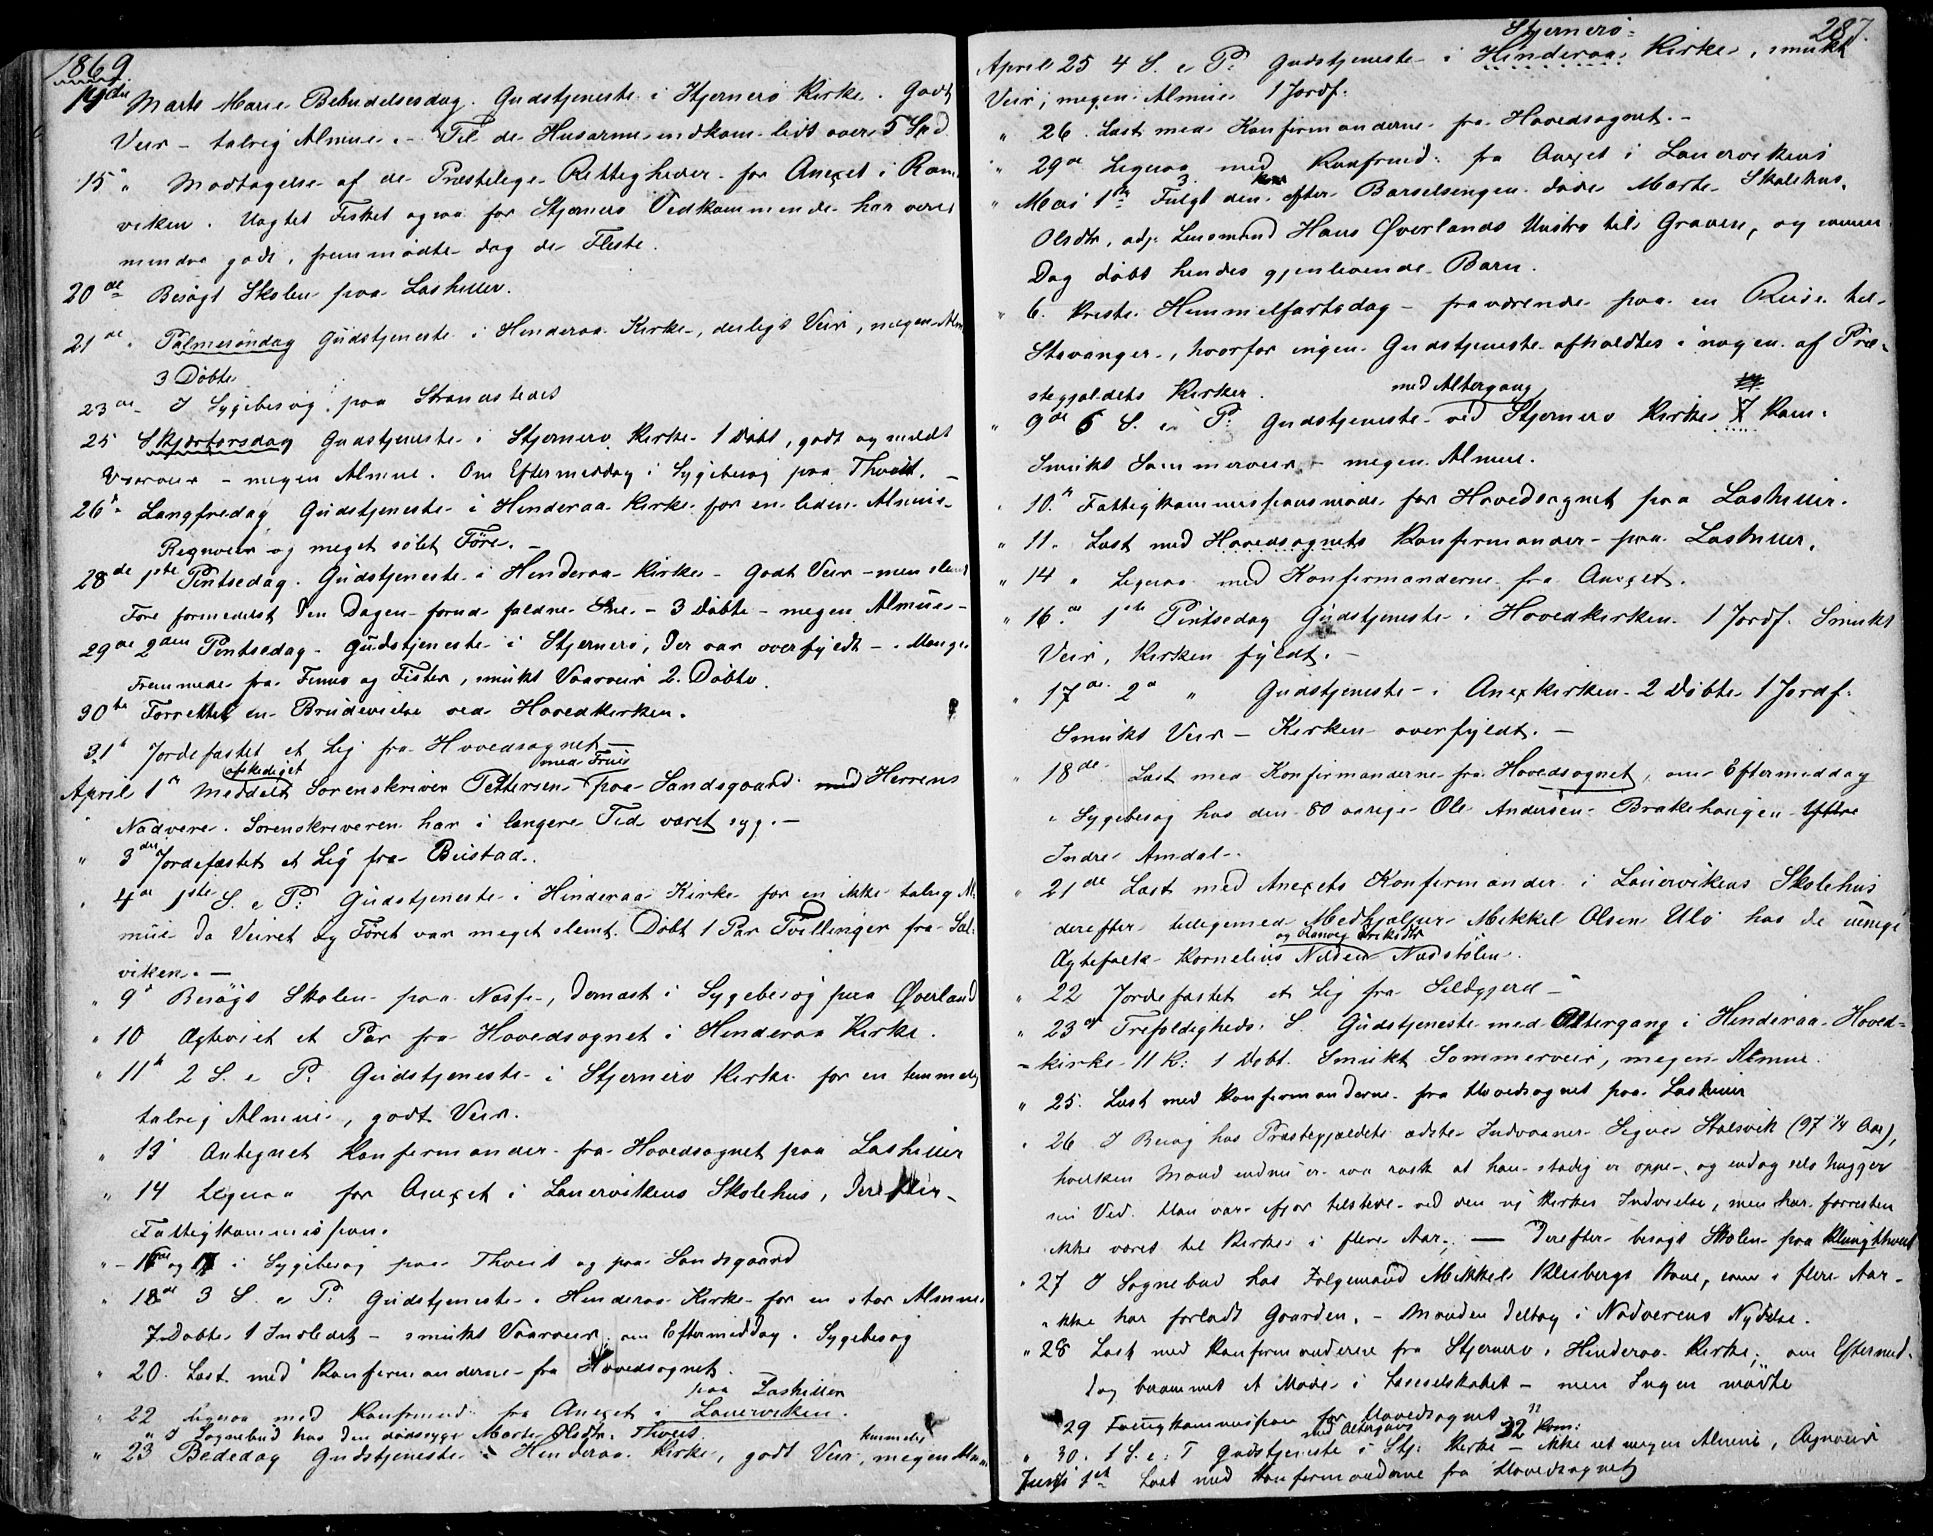 1869
14de Marts Mariæ Bebudelsesdag. Gudstjeneste i Stjernerø Kirke. Godt
Veir – talrig Almue. – Til de Husarme indkom lidt over 5 Spd.
15 " Modtagelse af de Præstelige Rettigheder for Anexet i
viken. Uagtet Fisket ogsaa for Stjernerø Vedkommende har været
mindre godt, fremmødte dog de Fleste.
20de Besøgt Skolen paa Løshuer.
21de " Palmesøndag Gudstjeneste i Hinderaa Kirke, deiligt Veir, megen Alm
3 Døbte
23de I Sygebesøg paa Strandstedet
25 Skjærtorsdag Gudstjeneste i Stjernerø Kirke 1 Døbt, godt og mildt
Vaarveir – megen Almue. Om Eftermiddag i Sygebesøg paa Thveit. –
26de Langfredag Gudstjeneste i Hinderaa Kirke for en liden Almue–
Regnveir og meget sølet Føre. –
28de 1ste Pintsedag. Gudstjeneste i Hinderaa Kirke – Godt Veir – men slemt
Føre formedelst den Dagen forud faldne Sne. – 3 Døbte – megen Almue –
29de 2den Pintsedag – Gudstjeneste i Stjernerø, der var overfyldt – . Mange
Fremmede fra Finnø og Fister, smukt Vaarveir 2 Døbte.
30te Forrettet en Brudevielse ved Hovedkirken.
31te Jordefæstet et Lig fra Hovedsognet –
afskediget med Frue
April 1ste Meddelt Sorenskriver Pettersen paa Sandsgaard med Herrens
Nadvere. Sorenskriveren har i længere Tid været syg. –
" 3die Jordefæstet et Lig fra Bustad.
" 4de 1ste S. e P. Gudstjeneste i Hinderaa Kirke for en ikke talrig Al
mue da Veiret og Føret var meget slemt. Døbt 1 Par Tvillinger fra Sal-
viken. –
" 9de Besøgt Skolen paa Næsse, dernæst i Sygebesøg paa Øverland
" 10 Ægteviet et Par fra Hovedsognet i Hinderaa Kirke.
" 11te 2 S. e P. Gudstjeneste i Stjernerø Kirke for en temmelig
talrig Almue, godt Veir.
" 13 Antegnet Konfirmander fra Hovedsognet paa Løshuer
" 14 Ligesaa for Anexet i Lauervikens Skolehus, derefter
Fattigkommission.
" 16de og 17 i Sygebesøg paa Thveit og paa Sandsgaard
" 18de 3 S. e P. Gudstjeneste i Hinderaa Kirke for en stor Almue
7 Døbte 1 Indledet – smukt Vaarveir, om Eftermiddag i Sygebesøg
" 20. Læst med Konfirmanderne fra Hovedsognet
paa Løshuer
" 22 Ligesaa med Konfirmd. fra Anexet i Lauerviken.
" I Sognebud hos den dødssyge Marte Olsdtr. Thveit.
temmelig
" 23 Bededag Gudstjeneste i Hinderaa Kirke, godt Veir, megen Almue
287.
Stjernerø
April 25 4 S. e P. Gudstjeneste i Hinderaa Kirke, smukt
Veir, megen Almue 1 Jordf.
" 26. Læst med Konfirmanderne fra Hovedsognet. –
" 29de Ligesaa med Konfirmd. fra Anexet i Lauervikens
Skolehus.
" Mai 1ste Fulgt den efter Barselsengen døde Marte
Olsdtr, adj. Lensmand Hans Øverlands Hustro til Graven, og samme
Dag døbt hendes gjenlevende Barn.
" 6. Kristi Himmelfartsdag – fraværende paa en Reise til
Stavanger, hvorfor ingen Gudstjeneste afholdtes i nogen af Præ-
stegjeldets Kirker.
med Altergang
" 9de 6 S. e P. Gudstjeneste ved Stjernerø Kirke 7 Kom.
Smukt Sommerveir, – megen Almue.
" 10. Fattigkommissionsmøde for Hovedsognet paa Løshuer.
" 11. Læst med Hovedsognets Konfirmander – paa Løshuer.
" 14 " Ligesaa med Konfirmanderne fra Anexet.
" 16de 1ste Pintsedag Gudstjeneste i Hovedkirken 1 Jordf. Smukt
Veir, Kirken fyldt. –
" 17de 2den " Gudstjeneste i Anexkirken 2 Døbte 1 Jordf.
Smukt Veir – Kirken overfyldt. –
" 18de Læst med Konfirmanderne fra Hovedsognet, om Eftermiddag
i Sygebesøg hos den 80 aarige Ole Andersen Brakehougen Yttre
Indre Amdal.
" 21de Læst med Anexets Konfirmander i Lauervikens Skolehus
derefter tilligemed Medhjælper Mikkel Olsen Ulø hos de uenige
og
Ægtefolk Kornelius
" 22 Jordefæstet et Lig fra Sildgjerd –
" 23de Trefoldigheds S. Gudstjeneste med Altergang i Hinderaa Hoved-
– kirke 11 K. 1 Døbt. Smukt Sommerveir, megen Almue.
" 25. Læst med Konfirmanderne fra Hovedsognet paa Løshuer
" 26 I Besøg hos Præstegjældets ældste Indvaaner Sigve Stølsvik (97 1/4 Aar),
hvilken Mand endnu er saa rask at han stadig er oppe, og endog selv hugger
sin Ved. Han var ifjor tilstede ved den ny Kirkes Indvielse, men har forresten
ikke været til Kirke i flere Aar. — Derefter besøgt Skolen paa Klungthveit
" 27 I Sognebud hos Følgemand Mikkel Kleibergs Kone, som i flere Aar
ikke har forladt Gaarden. – Manden deltog i Nadverens Nydelse.
" 28 Læst med Konfirmanderne fra Stjernerø i Hinderaa Kirke, om Eftermid-
dag berammet et Møde i Læseselskabet – men Ingen mødte
" 29 Fattigkommission for Hovedsognet
med Altergang 32 Kom:
" 30. 1 S. e. T Gudstjeneste i Stj. Kirke – ikke ret megen Almue, Regnveir
Juni 1ste Læst med Konfirmanderne fra Hovedsognet